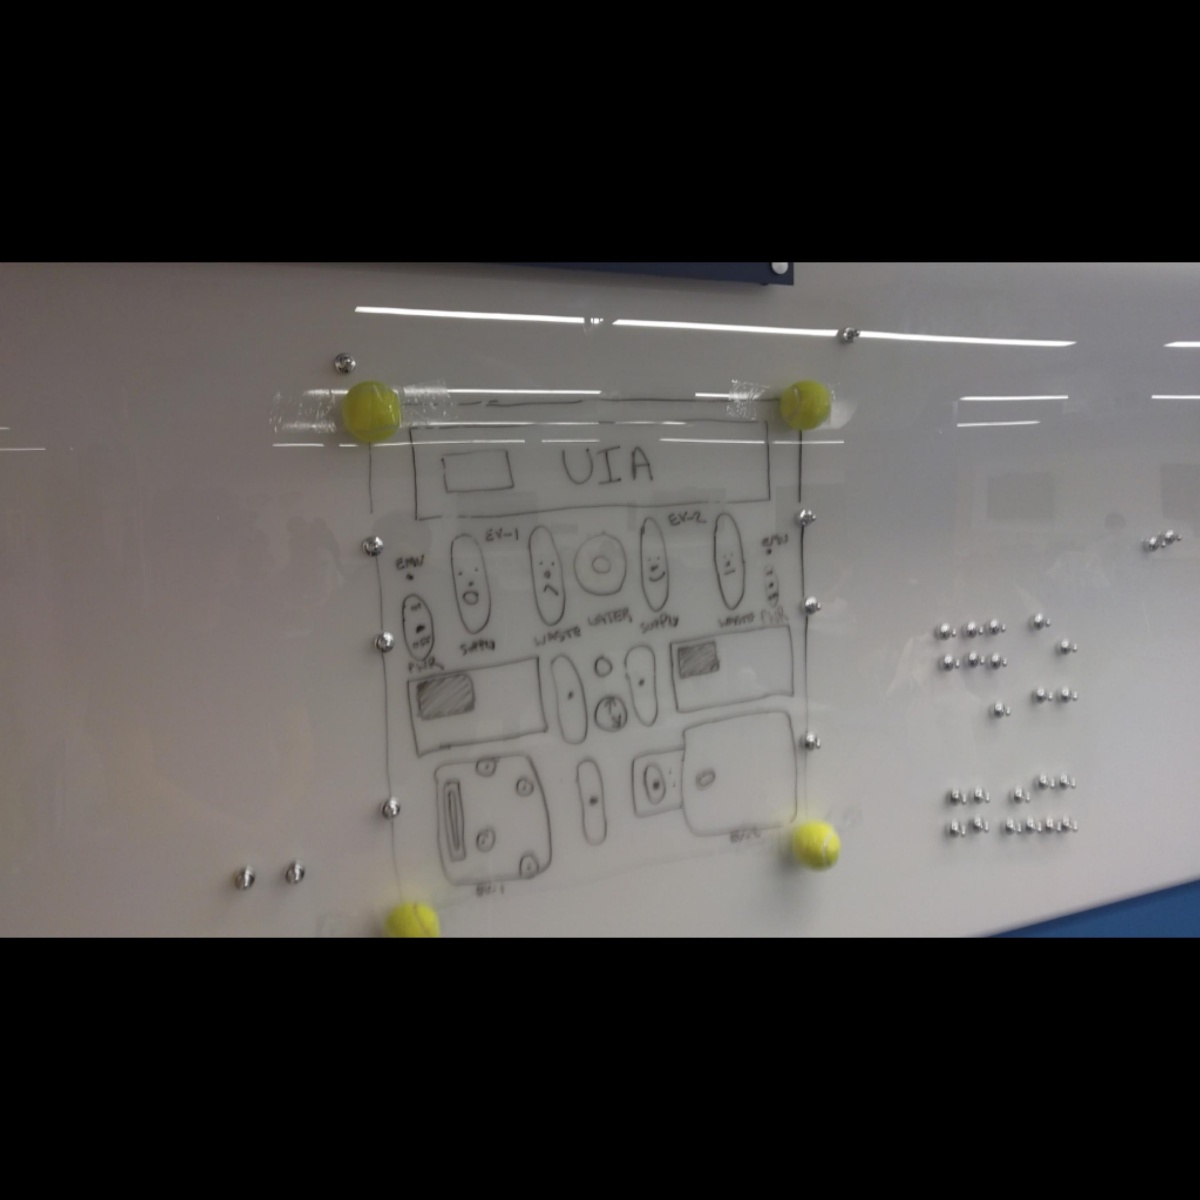 UIA
EV-1
EV-2
EMU
EMU
OFF
PWR
SUPPLY
WASTE
WATER
SUPPLY
WASTE
PWR
EV-1
EV-2